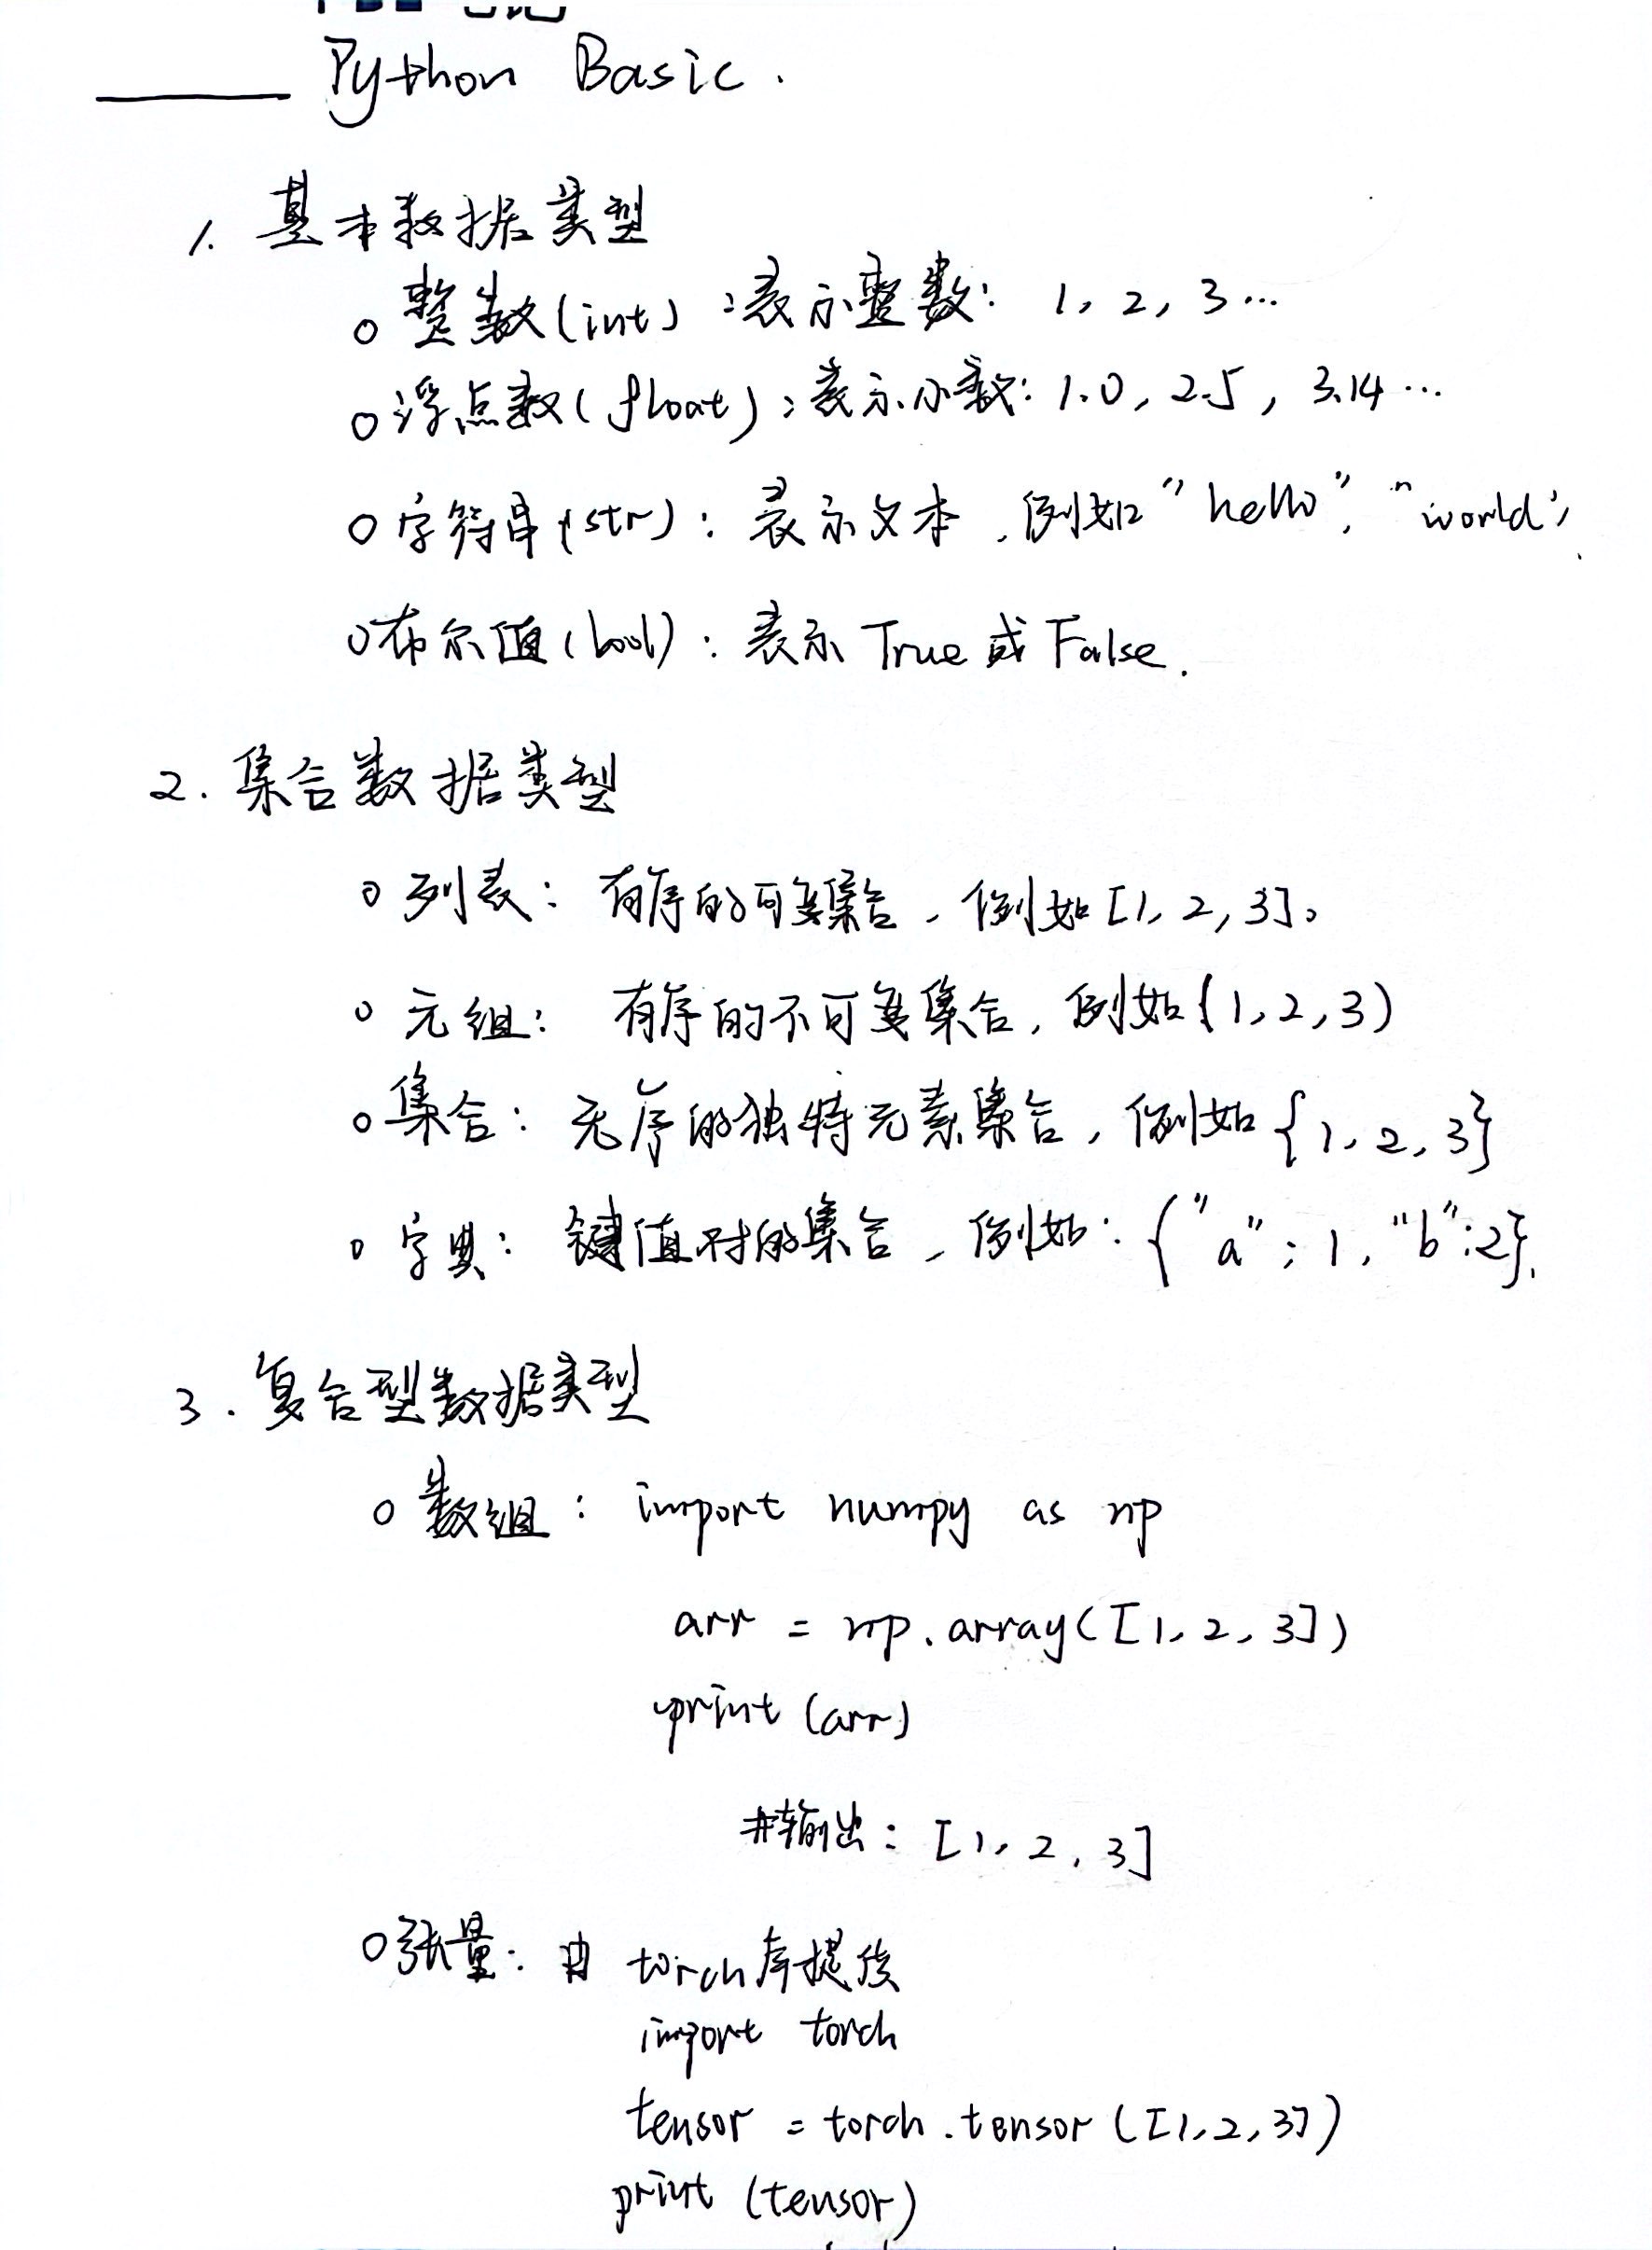 Python Basic.
1. 基本数据类型
o 整数(int):表示整数: 1, 2, 3...
o 浮点数(float):表示小数: 1.0, 2.5, 3.14...
o 字符串(str): 表示文本,例如"hello", "world",
o 布尔值(bool): 表示True或False.
2. 集合数据类型
o 列表: 有序的可变集合,例如[1, 2, 3]。
o 元组: 有序的不可变集合,例如(1, 2, 3)
o 集合: 无序的独特元素集合,例如{1, 2, 3}
o 字典: 键值对的集合,例如:{"a"; 1, "b":2}.
3. 复合型数据类型
o 数组: import numpy as np
arr = np.array([1, 2, 3])
print(arr)
#输出: [1, 2, 3]
o 张量: 由 torch库提供
import torch
tensor = torch.tensor([1,2,3])
print (tensor)